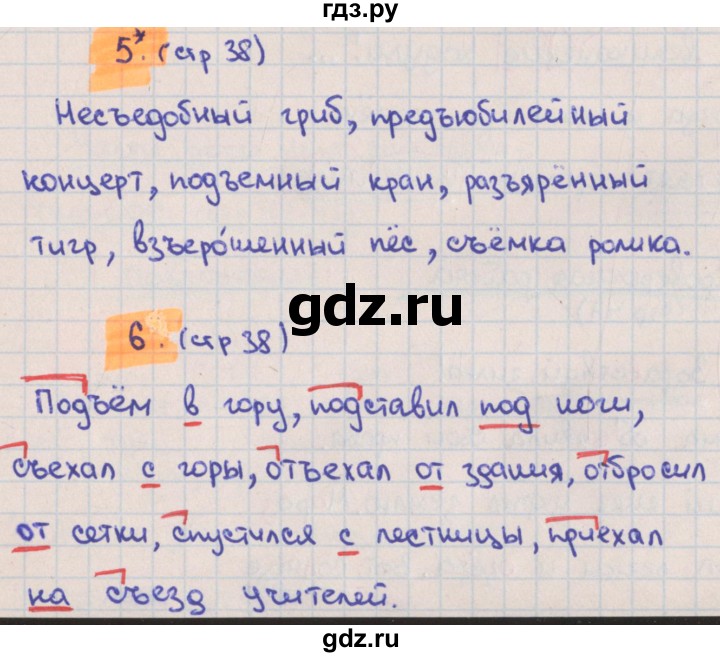 гдз.ру
5*. (стр 38)
Несъедобный гриб, предъюбилейный
концерт, подъемный кран, разъярённый
тигр, взъеро́шенный пёс, съёмка ролика.
gdz.ru
6. (стр 38)
Подъём в гору, подставил под ноги,
съехал с горы, отъехал от здания, отбросил
от сетки, спустился с лестницы, приехал
на съезд учителей.
gdz.ru